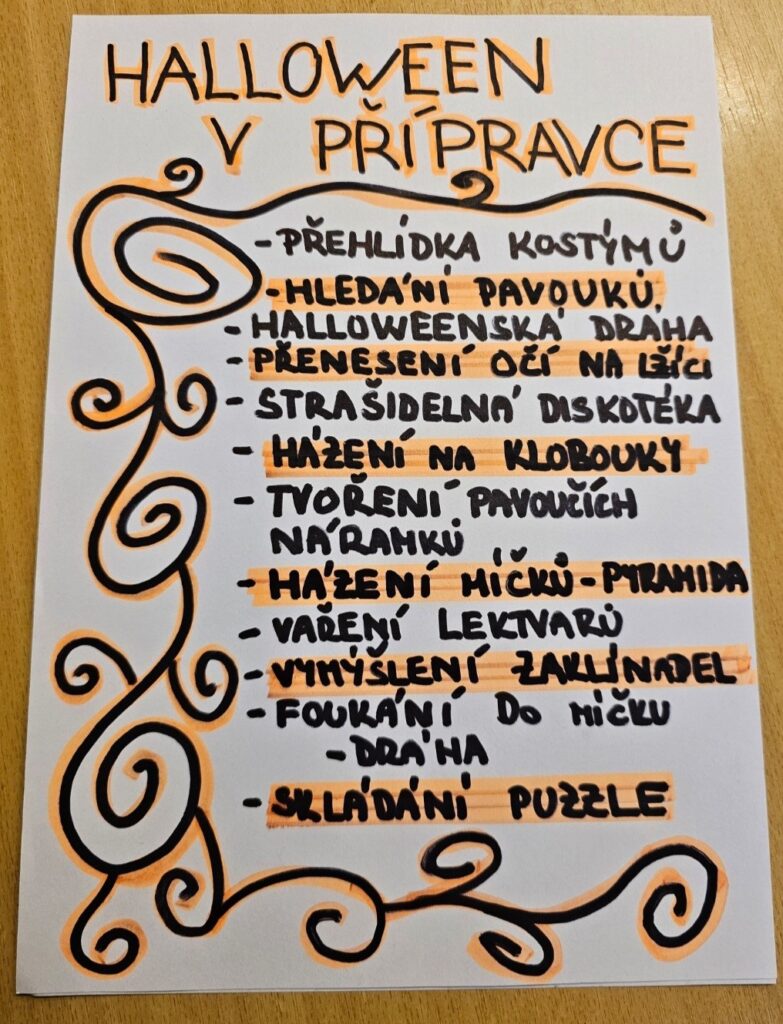 HALLOWEEN
V PŘÍPRAVCE
- PŘEHLÍDKA KOSTÝMŮ
- HLEDÁNÍ PAVOUKŮ
- HALLOWEENSKÁ DRÁHA
- PŘENESENÍ OČÍ NA LŽÍCI
- STRAŠIDELNÁ DISKOTÉKA
- HÁZENÍ NA KLOBOUKY
- TVOŘENÍ PAVOUČÍCH
NÁRAMKŮ
- HÁZENÍ MÍČKŮ - PYRAMIDA
- VAŘENÍ LEKTVARŮ
- VYMÝŠLENÍ ZAKLÍNADEL
- FOUKÁNÍ DO MÍČKU
- DRÁHA
- SKLÁDÁNÍ PUZZLE